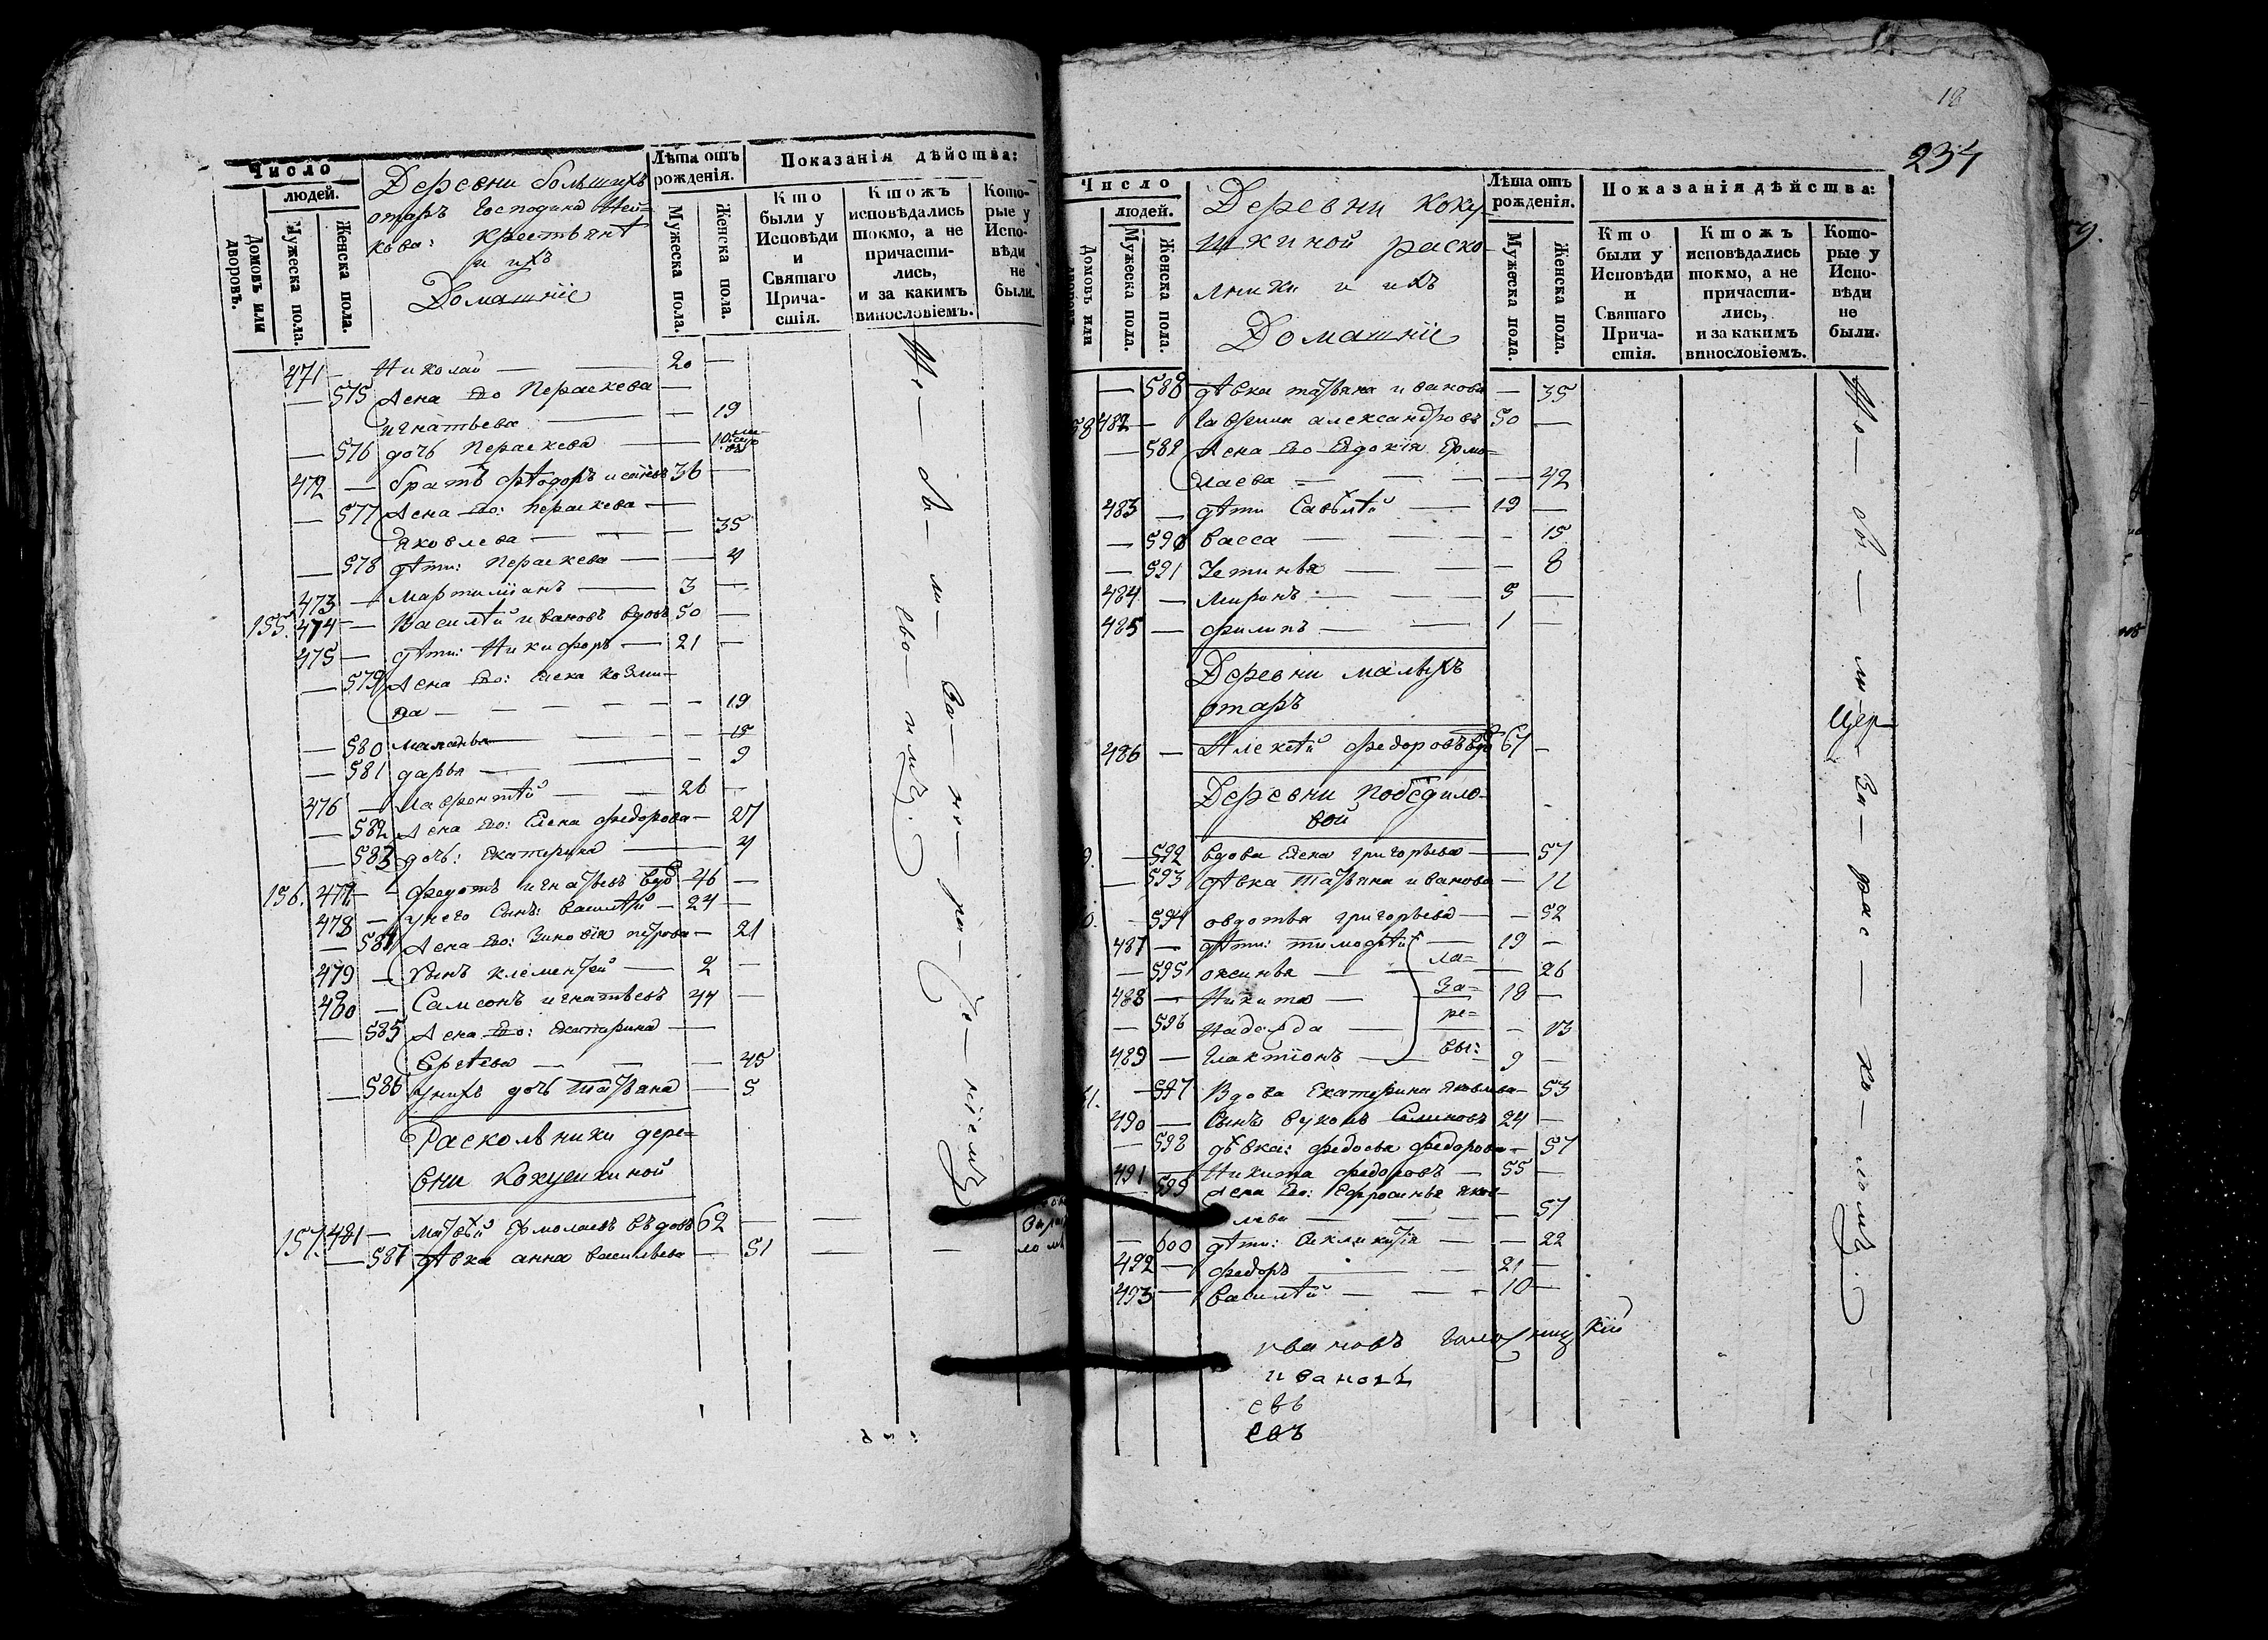 Число
людей.
Домовъ или дворовъ.
Мужеска пола.
Женска пола.
Деревни большихъ
отаръ Господина Ней=
кова: крестьянѣ
и ихъ
Домашнiе
Лѣта отъ рожденiя.
Мужеска пола.
Женска пола.
Показанiя дѣйства:
Кто были у Исповѣди и Святаго Прича- стiя.
Ктожъ исповѣдались токмо, а не причасти- лись, и за какимъ винословiемъ.
Кото- рые у Испо- вѣди не были.
471 — Николай — 20 —
— 575 Жена Его Пераскева —
Игнатьева — — 19
— 576 дочь Пераскева —
472 — братъ Ѳѣодоръ 36 —
— 577 Жена Его: Пераскева —
Яковлева — — 35
— 578 дѣти: Пераскева — — 4
473 — Мартимiанъ — 3 —
155. 474 — Василѣй ивановъ вдовъ 50 —
475 — дѣти: Никифоръ — 21 —
— 579 Жена Его: Елена козми=
на — — 19
— 580 маланья — — 15
— 581 дарья — — 9
476 — Лаврентѣй — 26 —
— 582 Жена Его: Елена федорова — 27
— 583 дочь: Екатерина — 4
156. 477 — Федотъ игнатьевъ вдо 46 —
478 — у него Сынъ: василѣй — 24 —
— 584 Жена Его: Зиновiя петрова — 21
479 — Сынъ клементей — 2 —
480 — Самсонъ игнатьевъ 44 —
— 585 Жена Его: Екатерина —
Сергѣева — — 45
— 586 у нихъ дочь татьяна — 5
Раскольники дере=
вни Кокушкиной
157. 481 — матвѣй Ермолаевъ въдовъ 62 —
— 587 дѣвка анна васильева — 51
18
234
Число
людей.
Домовъ или
Мужеска пола.
Женска пола.
Деревни коку=
шкиной раско=
лники и ихъ
Домашнiе
Лѣта отъ рожденiя.
Мужеска пола.
Женска пола.
Показанiя дѣйства:
Кто были у Исповѣди и Святаго Прича- стiя.
Ктожъ исповѣдались токмо, а не причасти- лись, и за какимъ винословiемъ.
Кото- рые у Испо- вѣди не были.
— 588 дѣвка татьяна иванова — 35
58 482 — Гаврила александровъ 50 —
— 589 Жена Его Евдокiя Ермо=
лаева — — 42
483 — дѣти Савѣлѣй — 19 —
— 590 васса — — 15
— 591 Устинья — — 8
484 — Миронъ — 5 —
485 — филипъ — 1 —
Деревни малыхъ
отаръ
486 — Алексѣй федоровъ вдо 67 —
Деревни победило=
вой
9. — 592 вдова Елена григорьева — 57
— 593 дѣвка татьяна иванова — 12
0. — 594 овдотья григорьева — — 52
487 — дѣти: тимофѣй — 19 —
— 595 оксинья — ла= — 26
488 — Никита — за= 18 —
— 596 Надежда — ре= — 13
489 — Галактiонъ — вы: 9 —
61. — 597 Вдова Екатерина яковлева — 53
490 — Сынъ вуколъ Семеновъ 24 —
— 598 дѣвка: федосья федорова — 57
491 — Никита федоровъ — 55 —
— 599 Жена Его: Ефросинья яков=
лева — — 57
— 600 дѣти: — — 22
492 — федоръ — 21 —
493 — василѣй — 10 —
ивановъ
ивановъ
евъ
евъ